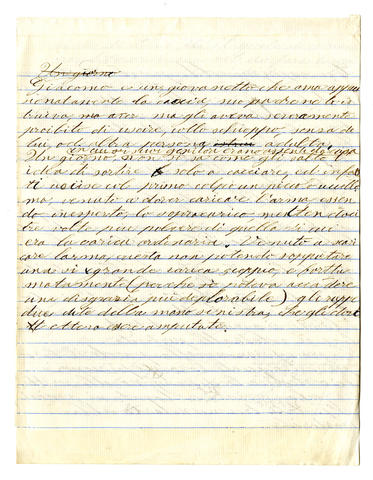 Un giorno
Giacomo è un giovanetto che ama appas
sionatamente la caccia, suo padre ne lo is
truiva, ma aver ma gli aveva severamente
proibito di uscire, collo schioppo, senza di
lui od altra persona adulta.
Un giorno, non si sa come gli saltò l'
idea di sortire solo a cacciare, ed infat
ti uccise col primo colpo un piccolo uccello
ma, venuto a dover caricare l'arma, essen
do inesperto, lo sopracaricò mettendoci
tre volte più polvere di quella di cui
era la carica ordinaria. Venuto a scari
care l'arma, questa non potendo sopportare
una si grande carica scoppiò, e fortu
natamente (perché si poteva accadere
una disgrazia più deplorabile) gli ruppe
due dita della mano sinistra, che gli dove
ttero essere amputate.